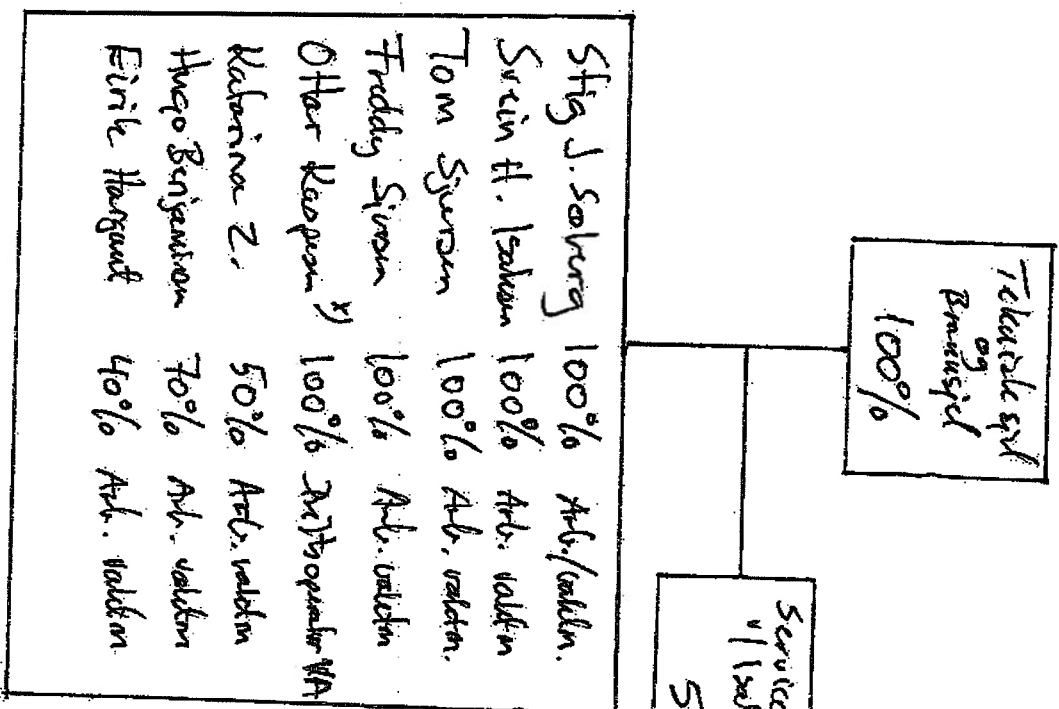 Teknisk sjef
og
Brannsjef
100%
Service
v/ Isa
5
Stig J. Solberg 100% Arb./vaktm.
Svein H. Isaksen 100% Arb. vaktm
Tom Sjursen 100% Arb. vaktm.
Freddy Sivsen 100% Arb. vaktm
Ottar Kaspersen x) 100% Driftsoperatør VA
Katarina Z. 50% Arb. vaktm
Hugo Benjaminsen 70% Arb. vaktm
Eirik 40% Arb. vaktm